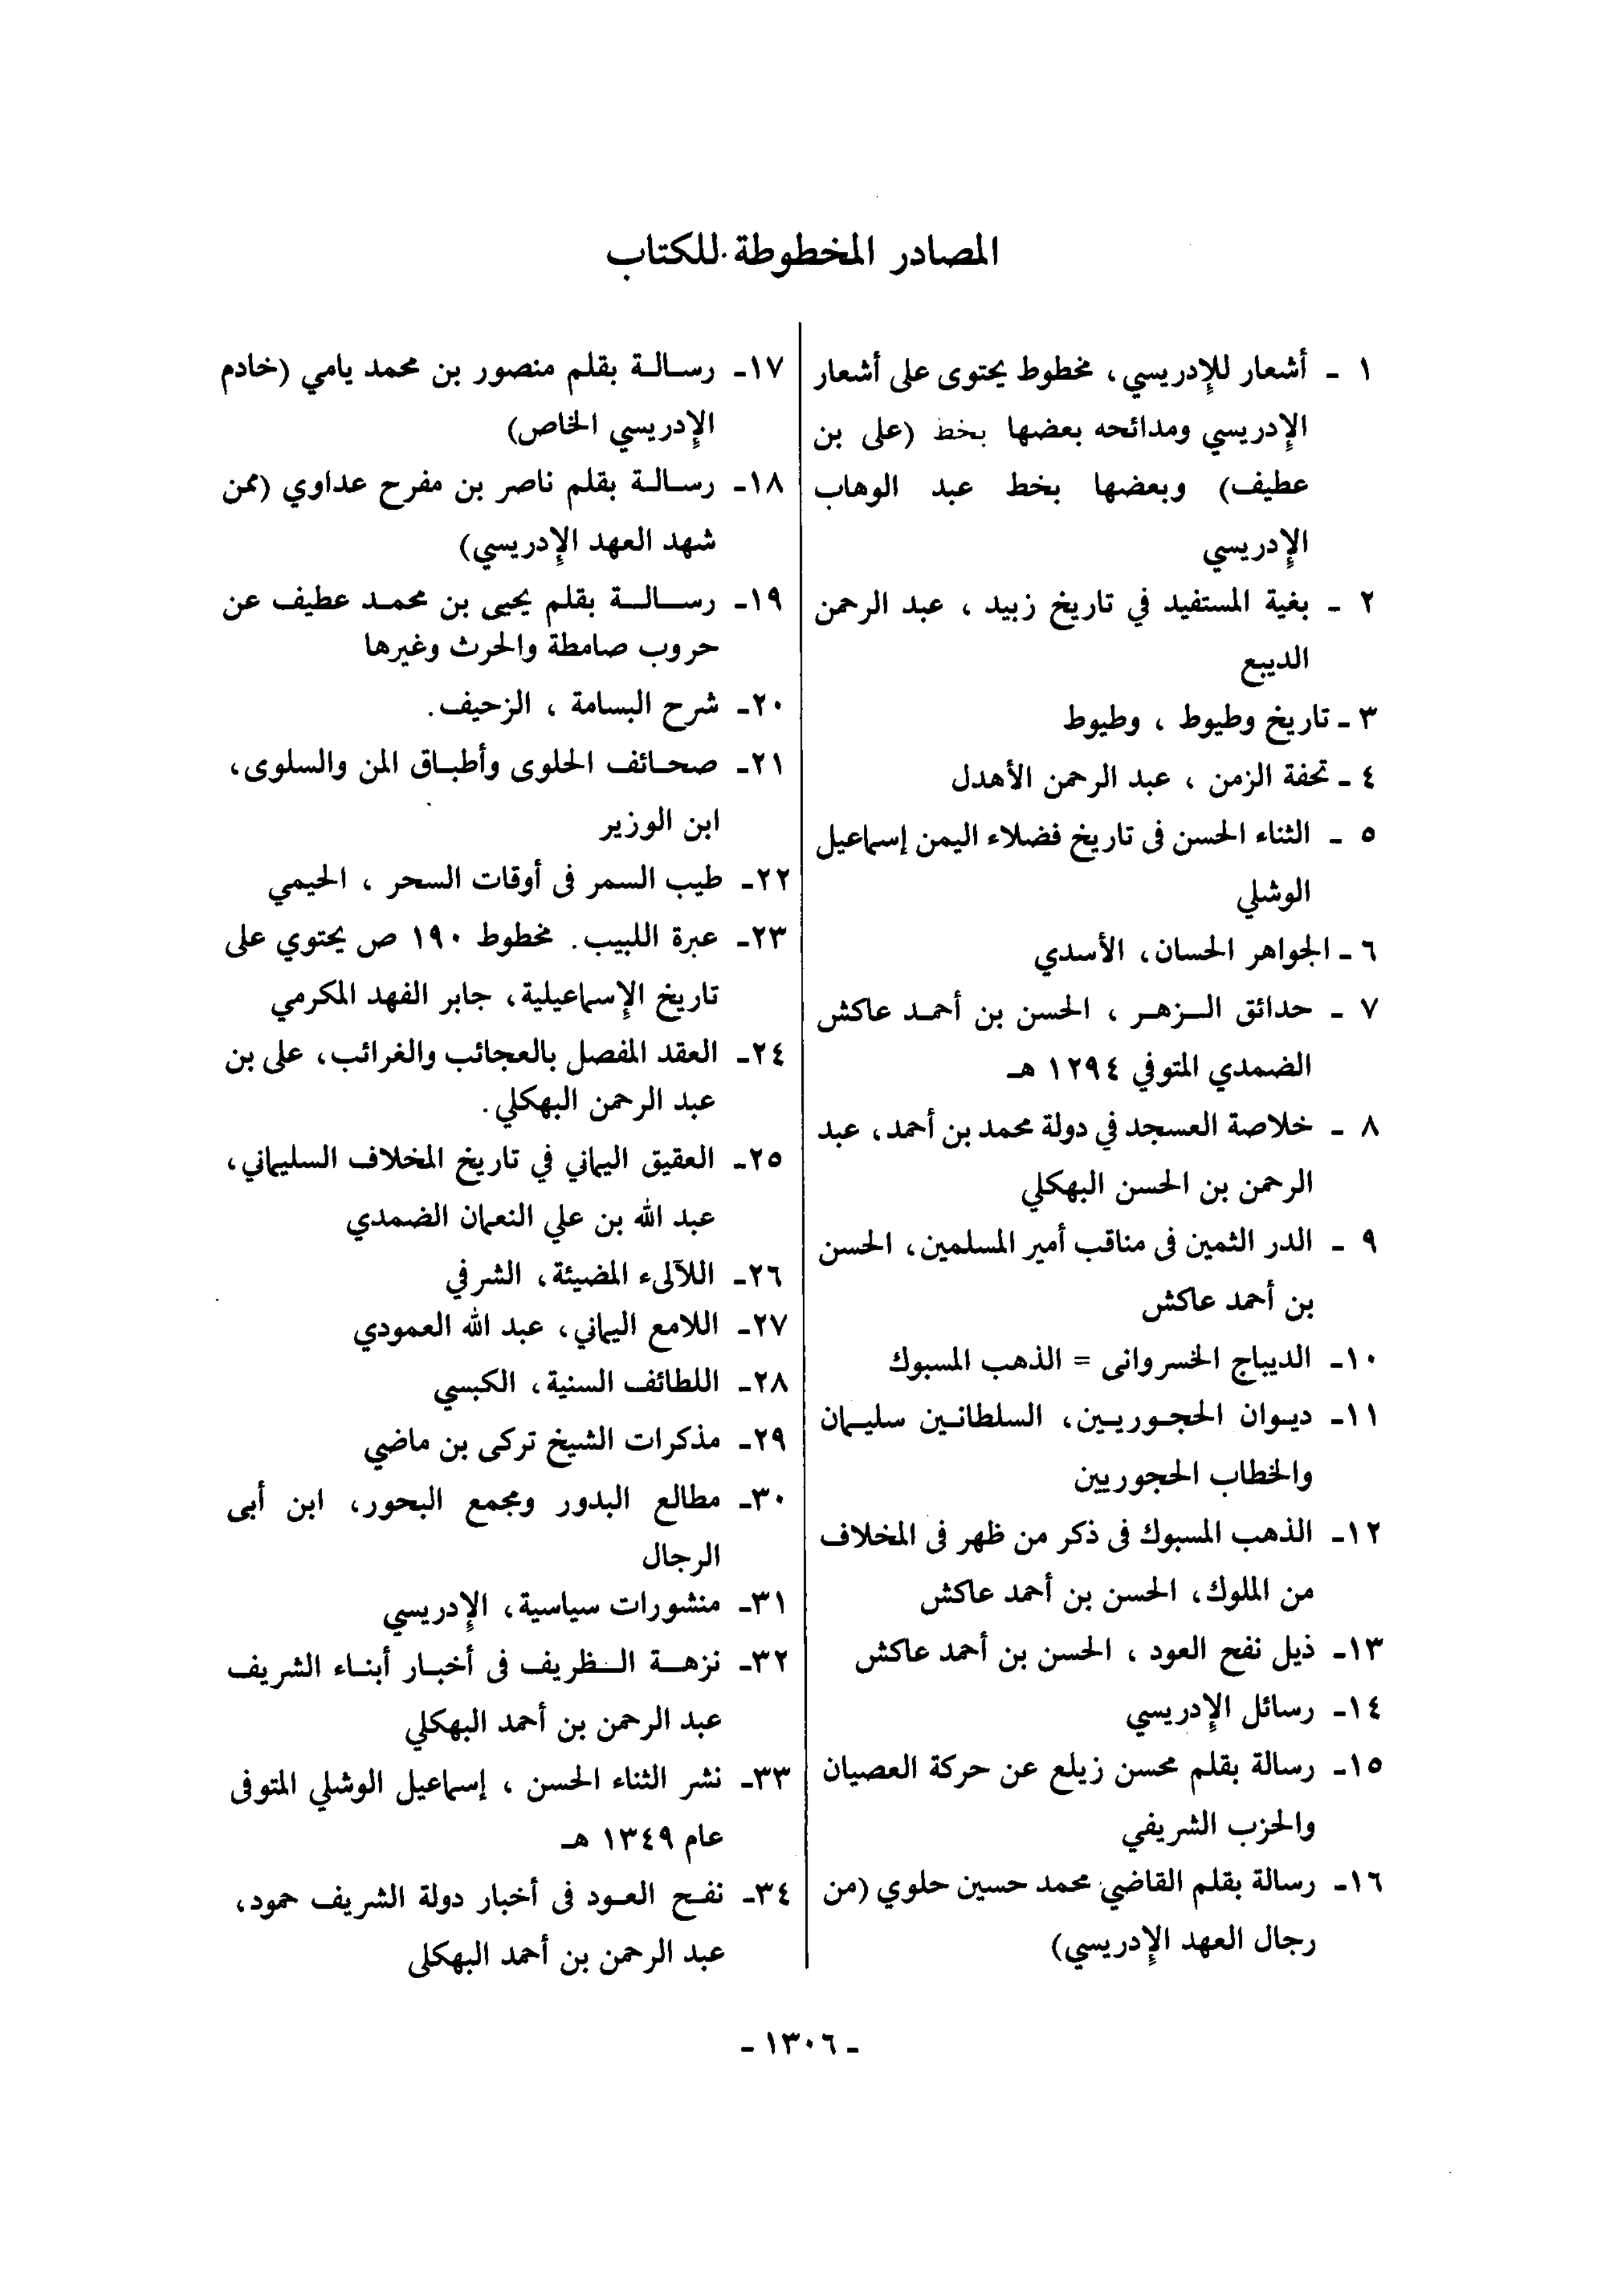 المصادر المخطوطة للكتاب
١ - أشعار للإدريسي، مخطوط يحتوى على أشعار
الإدريسي ومدائحه بعضها بخط (على بن
عطيف) وبعضها بخط عبد الوهاب
الإدريسي
٢ - بغية المستفيد في تاريخ زبيد ، عبد الرحمن
الديبع
٣ - تاريخ وطيوط ، وطيوط
٤ - تحفة الزمن ، عبد الرحمن الأهدل
٥ - الثناء الحسن فى تاريخ فضلاء اليمن إسماعيل
الوشلي
٦ - الجواهر الحسان، الأسدي
٧ - حدائق الزهر ، الحسن بن أحمد عاكش
الضمدي المتوفي ١٢٩٤ هـ
٨ - خلاصة العسجد في دولة محمد بن أحمد، عبد
الرحمن بن الحسن البهكلي
٩ - الدر الثمين فى مناقب أمير المسلمين، الحسن
بن أحمد عاكش
١٠- الديباج الخسروانى = الذهب المسبوك
١١- ديوان الحجوريين، السلطانين سليمان
والخطاب الحجوريين
١٢- الذهب المسبوك فى ذكر من ظهر فى المخلاف
من الملوك، الحسن بن أحمد عاكش
١٣- ذيل نفح العود ، الحسن بن أحمد عاكش
١٤- رسائل الإدريسي
١٥- رسالة بقلم محسن زيلع عن حركة العصيان
والحزب الشريفي
١٦- رسالة بقلم القاضي محمد حسين حلوي (من
رجال العهد الإدريسي)
١٧- رسالة بقلم منصور بن محمد يامي (خادم
الإدريسي الخاص)
١٨- رسالة بقلم ناصر بن مفرح عداوي (ممن
شهد العهد الإدريسي)
١٩- رسالة بقلم يحيى بن محمد عطيف عن
حروب صامطة والحرث وغيرها
٢٠- شرح البسامة ، الزحيف.
٢١- صحائف الحلوى وأطباق المن والسلوى،
ابن الوزير
٢٢- طيب السمر فى أوقات السحر ، الحيمي
٢٣- عبرة اللبيب. مخطوط ١٩٠ ص يحتوي على
تاريخ الإسماعيلية، جابر الفهد المكرمي
٢٤- العقد المفصل بالعجائب والغرائب، على بن
عبد الرحمن البهكلي.
٢٥- العقيق اليماني في تاريخ المخلاف السليماني،
عبد الله بن علي النعمان الضمدي
٢٦- اللآلىء المضيئة، الشرفي
٢٧- اللامع اليماني، عبد الله العمودي
٢٨- اللطائف السنية، الكبسي
٢٩- مذكرات الشيخ تركى بن ماضي
٣٠- مطالع البدور ومجمع البحور، ابن أبى
الرجال
٣١- منشورات سياسية، الإدريسي
٣٢- نزهة الظريف فى أخبار أبناء الشريف
عبد الرحمن بن أحمد البهكلي
٣٣- نشر الثناء الحسن ، إسماعيل الوشلي المتوفى
عام ١٣٤٩ هـ
٣٤- نفح العود فى أخبار دولة الشريف حمود،
عبد الرحمن بن أحمد البهكلى
- ١٣٠٦ -